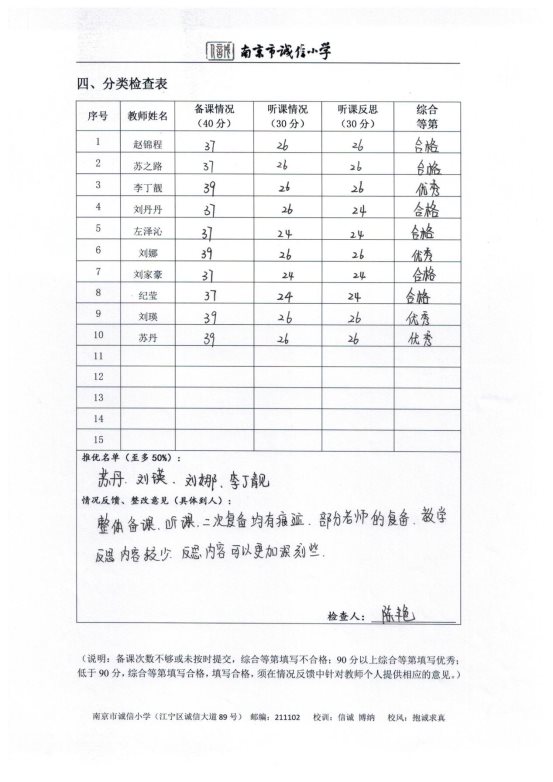 南京市诚信小学
四、分类检查表
序号 教师姓名 备课情况（40分） 听课情况（30分） 听课反思（30分） 综合等第
1 赵锦程 37 26 26 合格
2 苏之路 37 26 26 合格
3 李丁靓 39 26 26 优秀
4 刘丹丹 37 26 24 合格
5 左泽沁 37 24 24 合格
6 刘娜 39 26 26 优秀
7 刘家豪 37 24 24 合格
8 纪莹 37 24 24 合格
9 刘瑛 39 26 26 优秀
10 苏丹 39 26 26 优秀
11
12
13
14
15
推优名单（至多50%）：
苏丹、刘瑛、刘娜、李丁靓
情况反馈、整改意见（具体到人）：
整体备课、听课、二次复备均有痕迹、部分老师的复备、教学
反思内容较少、反思内容可以更加深刻些.
检查人：陈艳
（说明：备课次数不够或未按时提交，综合等第填写不合格；90分以上综合等第填写优秀；
低于90分，综合等第填写合格，填写合格，须在情况反馈中针对教师个人提供相应的意见。）
南京市诚信小学（江宁区诚信大道89号） 邮编：211102 校训：信诚 博纳 校风：抱诚求真